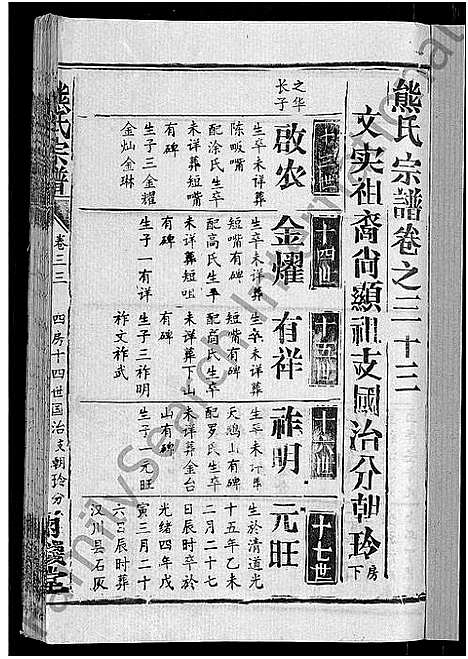 熊氏宗譜卷之三十三
文实祖裔尚顯祖支國治分朝玲房下
十三世
之华长子
啟农
生卒未详葬
陈畈嘴
配涂氏生卒
未详葬短嘴
有碑
生子三金耀
金灿金琳
十四世
金耀
生卒未详葬
短嘴有碑
配高氏生卒
未详葬短嘴
有碑
生子一有详
十五世
有祥
生卒未详葬
短嘴有碑
配高氏生卒
未详葬下山
有碑
生子三祚明
祚文祚武
十六世
祚明
生卒未详葬
天鵝山有碑
配罗氏生卒
未详葬金台
山有碑
生子一元旺
十七世
元旺
生於清道光
十五年乙未
二月二十七
日辰时卒於
光绪四年戊
寅三月二十
六日辰时葬
汉川县石灰
熊氏宗譜
卷三三
四房十四世国治支朝玲分